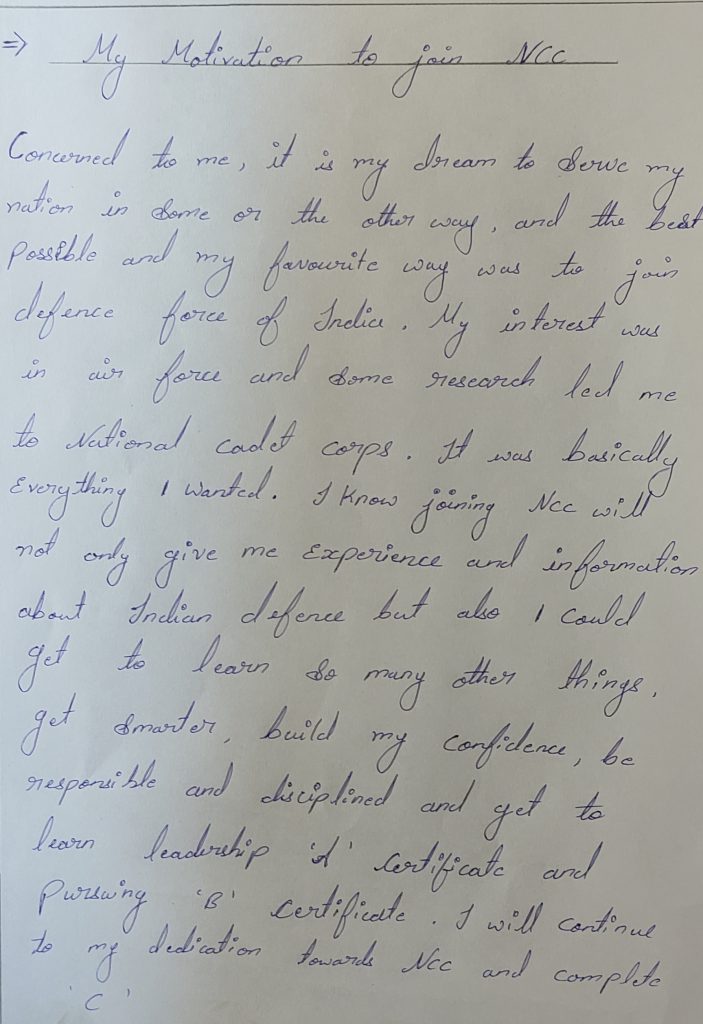 ⇒ My Motivation to join NCC
Concerned to me, it is my dream to serve my
nation in some or the other way, and the best
possible and my favourite way was to join
defence force of India. My interest was
in air force and some research led me
to National cadet corps. It was basically
Everything I wanted. I know joining NCC will
not only give me experience and information
about Indian defence but also I could
get to learn so many other things,
get smarter, build my confidence, be
responsible and disciplined and get to
learn leadership 'A' certificate and
pursuing 'B' certificate. I will continue
to my dedication towards NCC and complete
'C'